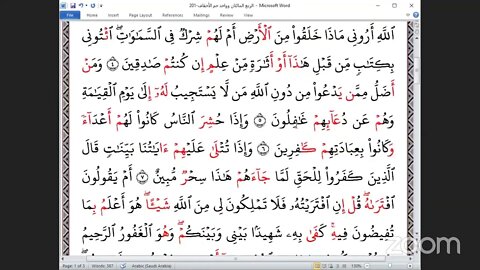 الربع المائتان وواحد حم الأحقاف-201 - Microsoft Word
File Home Insert Page Layout References Mailings Review View
ٱللَّهِ أَرُونِى مَاذَا خَلَقُوا۟ مِنَ ٱلْأَرْضِ أَمْ لَهُمْ شِرْكٌ فِى ٱلسَّمَٰوَٰتِ ۖ ٱئْتُونِى
بِكِتَٰبٍ مِّن قَبْلِ هَٰذَآ أَوْ أَثَٰرَةٍ مِّنْ عِلْمٍ إِن كُنتُمْ صَٰدِقِينَ ٤ وَمَنْ
أَضَلُّ مِمَّن يَدْعُوا۟ مِن دُونِ ٱللَّهِ مَن لَّا يَسْتَجِيبُ لَهُۥٓ إِلَىٰ يَوْمِ ٱلْقِيَٰمَةِ
وَهُمْ عَن دُعَآئِهِمْ غَٰفِلُونَ ٥ وَإِذَا حُشِرَ ٱلنَّاسُ كَانُوا۟ لَهُمْ أَعْدَآءً
وَكَانُوا۟ بِعِبَادَتِهِمْ كَٰفِرِينَ ٦ وَإِذَا تُتْلَىٰ عَلَيْهِمْ ءَايَٰتُنَا بَيِّنَٰتٍ قَالَ
ٱلَّذِينَ كَفَرُوا۟ لِلْحَقِّ لَمَّا جَآءَهُمْ هَٰذَا سِحْرٌ مُّبِينٌ ٧ أَمْ يَقُولُونَ
ٱفْتَرَىٰهُ ۖ قُلْ إِنِ ٱفْتَرَيْتُهُۥ فَلَا تَمْلِكُونَ لِى مِنَ ٱللَّهِ شَيْـًٔا ۖ هُوَ أَعْلَمُ بِمَا
تُفِيضُونَ فِيهِ ۖ كَفَىٰ بِهِۦ شَهِيدًۢا بَيْنِى وَبَيْنَكُمْ ۖ وَهُوَ ٱلْغَفُورُ ٱلرَّحِيمُ
zoom
Page: 1 of 3 Words: 587 Arabic (Saudi Arabia) 130%